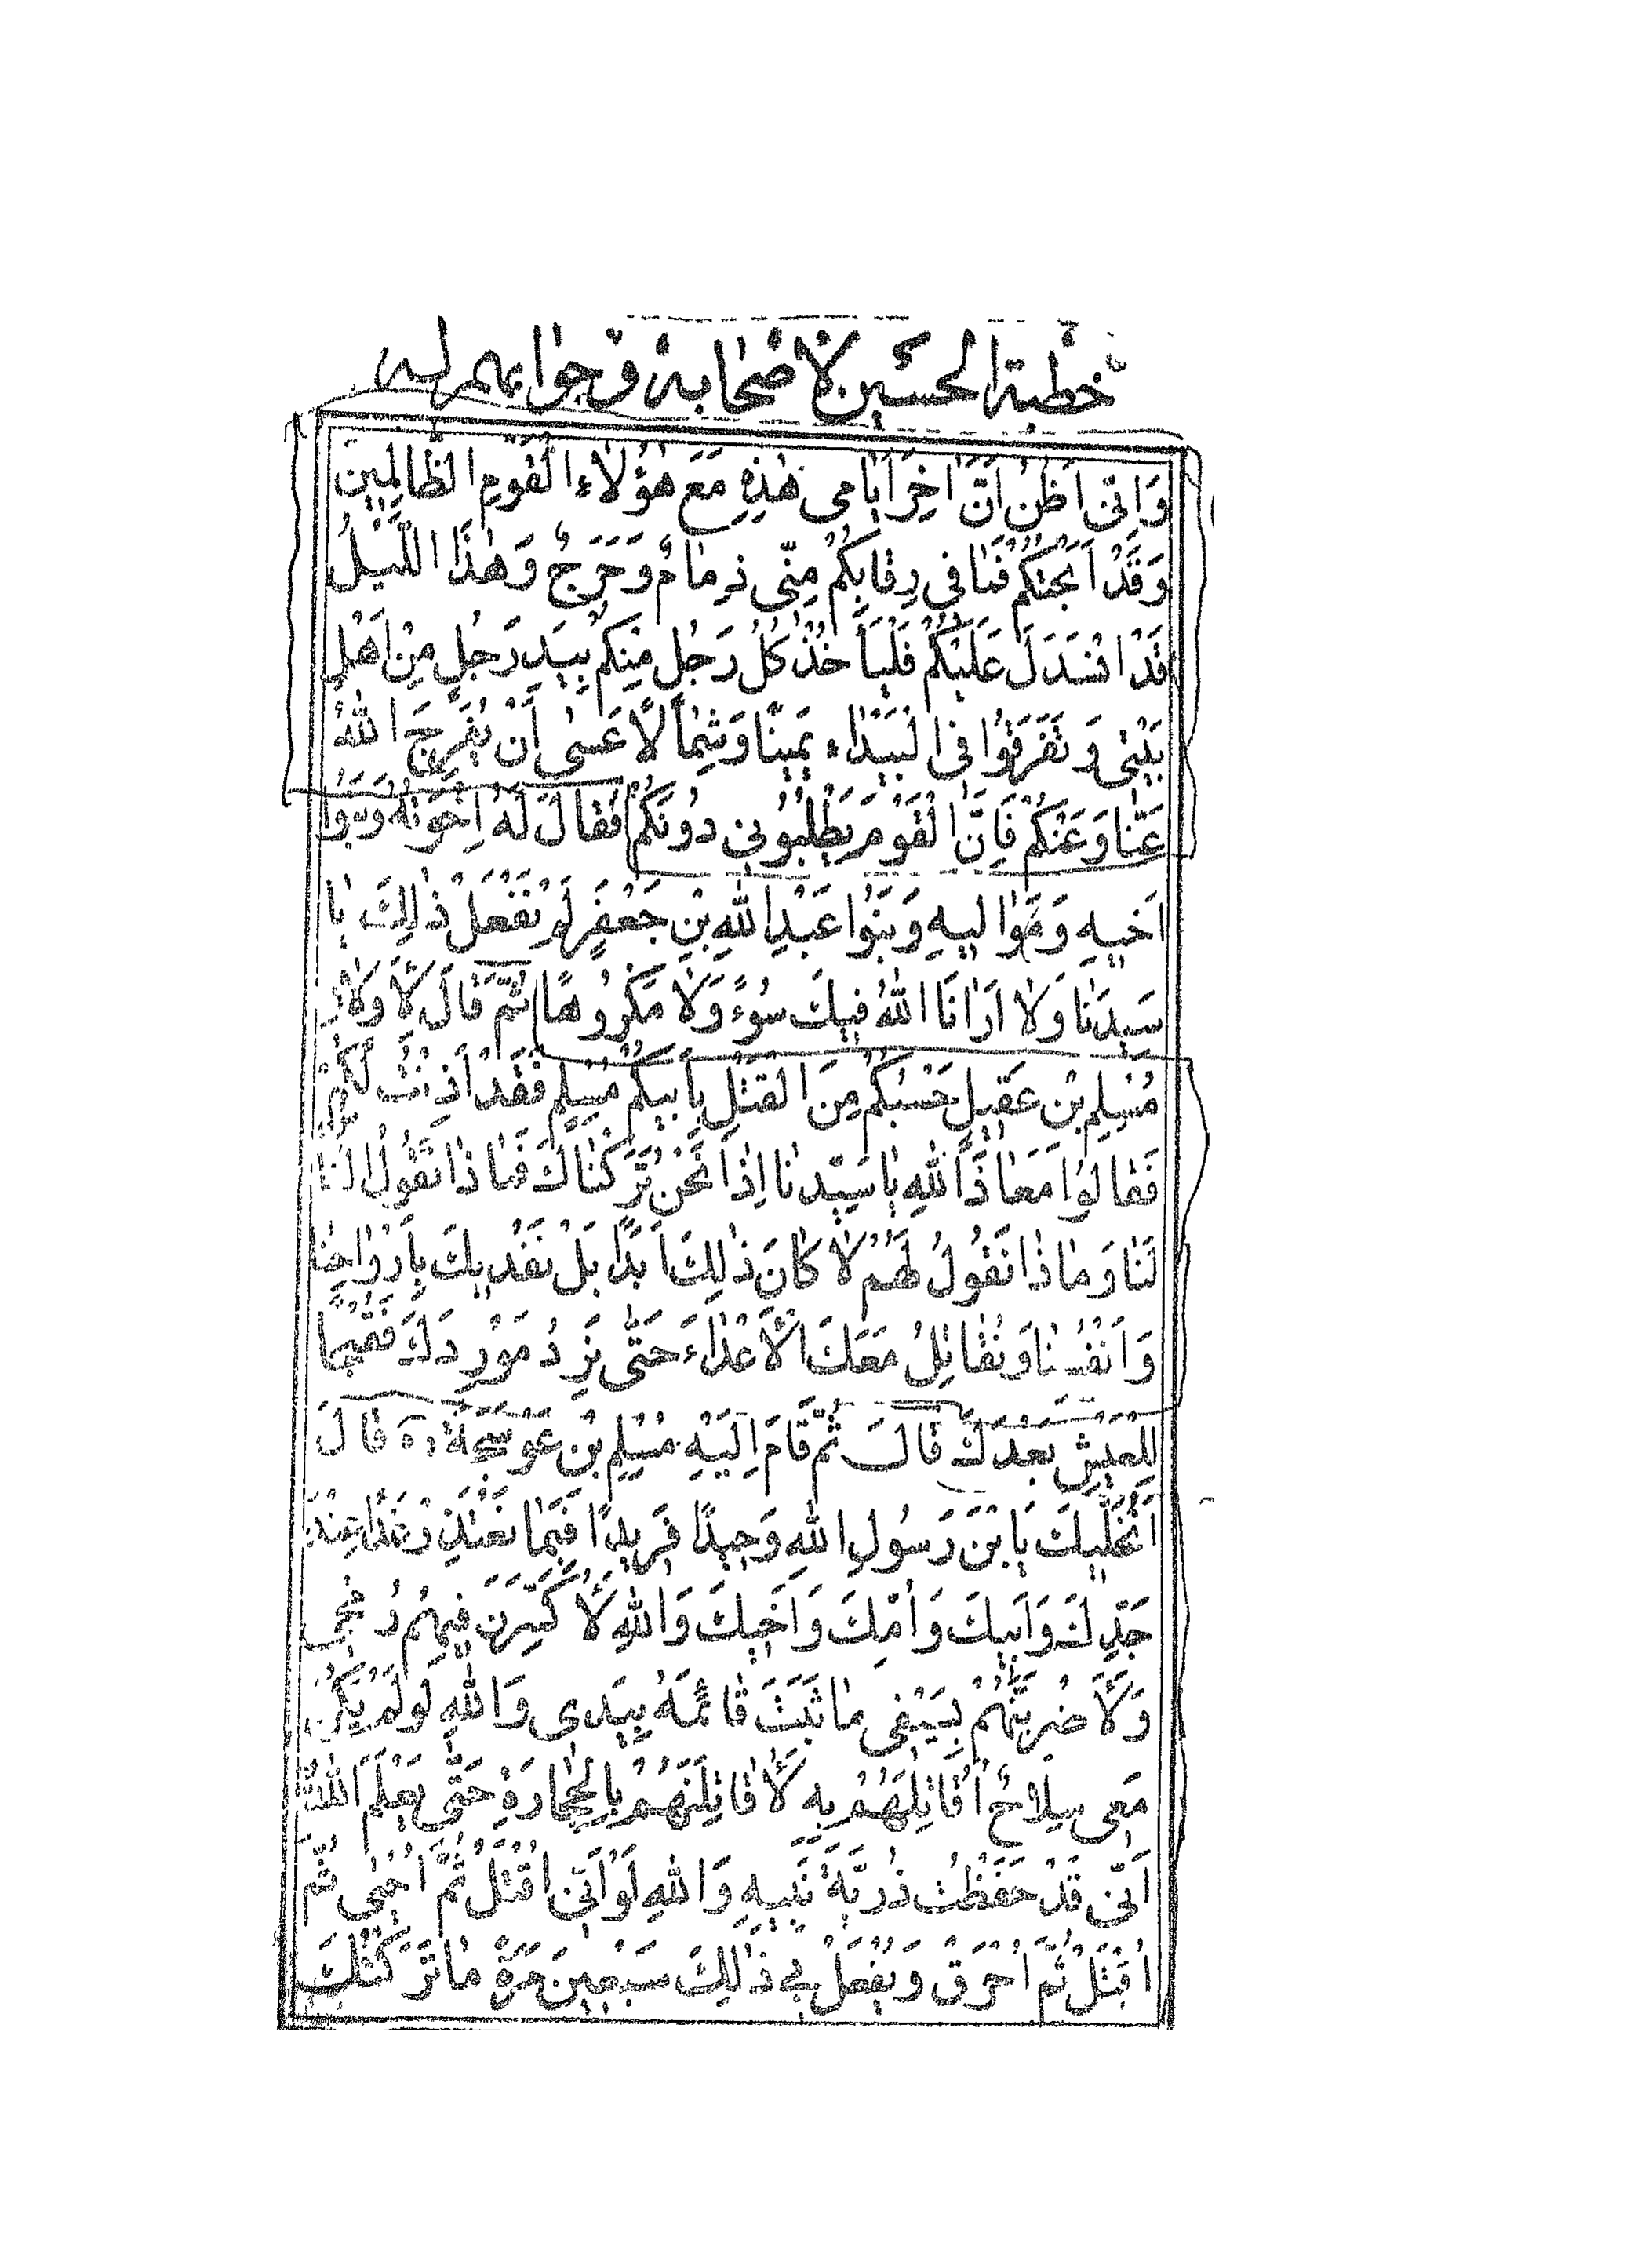 خطبة الحسين لاصحابه وجوابهم له
وَاِنّى اَظُنُّ اَنَّ اٰخِرَ اَيّامى هٰذِهِ مَعَ هٰؤُلاٰءِ الْقَوْمِ الظّالِمينَ
وَقَدْ اَبَحْتُكُمْ فَمٰا فى رِقابِكُمْ مِنّى ذِمٰامٌ وَحَرَجٌ وَهٰذَا اللَّيْلُ
قَدْ انْسَدَلَ عَلَيْكُمْ فَلْيَأْخُذْ كُلُّ رَجُلٍ مِنْكُمْ بِيَدِ رَجُلٍ مِنْ اَهْلِ
بَيْتى وَتَفَرَّقُوا فِى الْبَيْدٰاءِ يَمينًا وَشِمٰالًا عَسٰى اَنْ يُفَرِّجَ اللهُ
عَنّٰا وَعَنْكُمْ فَاِنَّ الْقَوْمَ يَطْلُبُونى دُونَكُمْ فَقالَ لَهُ اِخْوَتُهُ وَبَنُوا
اَخيهِ وَمَوٰاليهِ وَبَنُوا عَبْدِ اللهِ بْنِ جَعْفَرٍ لَمْ نَفْعَلْ ذٰلِكَ يٰا
سَيِّدَنٰا وَلاٰ اَرٰانَا اللهُ فيكَ سُوءً وَلاٰ مَكْرُوهًا ثُمَّ قٰالَ لِأَوْلاٰدِ
مُسْلِمِ بْنِ عَقيلٍ حَسْبُكُمْ مِنَ الْقَتْلِ بِأَبيكُمْ مُسْلِمٍ فَقَدْ اَذِنْتُ لَكُمْ
فَقٰالُوا مَعٰاذَ اللهِ يٰا سَيِّدَنٰا اِذٰا نَحْنُ تَرَكْنٰاكَ فَمٰاذٰا تَقُولُ النّٰاسُ
لَنٰا وَمٰاذٰا نَقُولُ لَهُمْ لاٰ كٰانَ ذٰلِكَ اَبَدًا بَلْ نَفْديكَ بِاَرْوٰاحِنٰا
وَاَنْفُسِنٰا وَنُقٰاتِلُ مَعَكَ الْأَعْدٰاءَ حَتّٰى نَرِدُ مَوْرِدَكَ فَقُبْحًا
لِلْعَيْشِ بَعْدَكَ قٰالَ ثُمَّ قٰامَ اِلَيْهِ مُسْلِمُ بْنُ عَوْسَجَةَ ره قٰالَ
اَنُخَلّيكَ يَابْنَ رَسُولِ اللهِ وَحيدًا فَريدًا فَبِمٰا نَعْتَذِرُ غَدًا عِنْدَ
جَدِّكَ وَاَبيكَ وَاُمِّكَ وَاَخيكَ وَاللهِ لَأُكَسِّرَنَّ فيهِمْ رُمْحى
وَلَأَضْرِبَنَّهُمْ بِسَيْفى مٰا ثَبَتَ قٰائِمَهُ بِيَدى وَاللهِ لَوْ لَمْ يَكُنْ
مَعى سِلاٰحٌ اُقٰاتِلُهُمْ بِهِ لَأُقٰاتِلَنَّهُمْ بِالْحِجٰارَةِ حَتّٰى يَعْلَمَ اللهُ
اَنّى قَدْ حَفَظْتُ ذُرِّيَّةَ نَبِيِّهِ وَاللهِ لَوْ اَنّى اُقْتَلُ ثُمَّ اُحْيٰى ثُمَّ
اُقْتَلُ ثُمَّ اُحْرَقُ وَيُفْعَلُ بى ذٰلِكَ سَبْعينَ مَرَّةً مٰا تَرَكْتُكَ